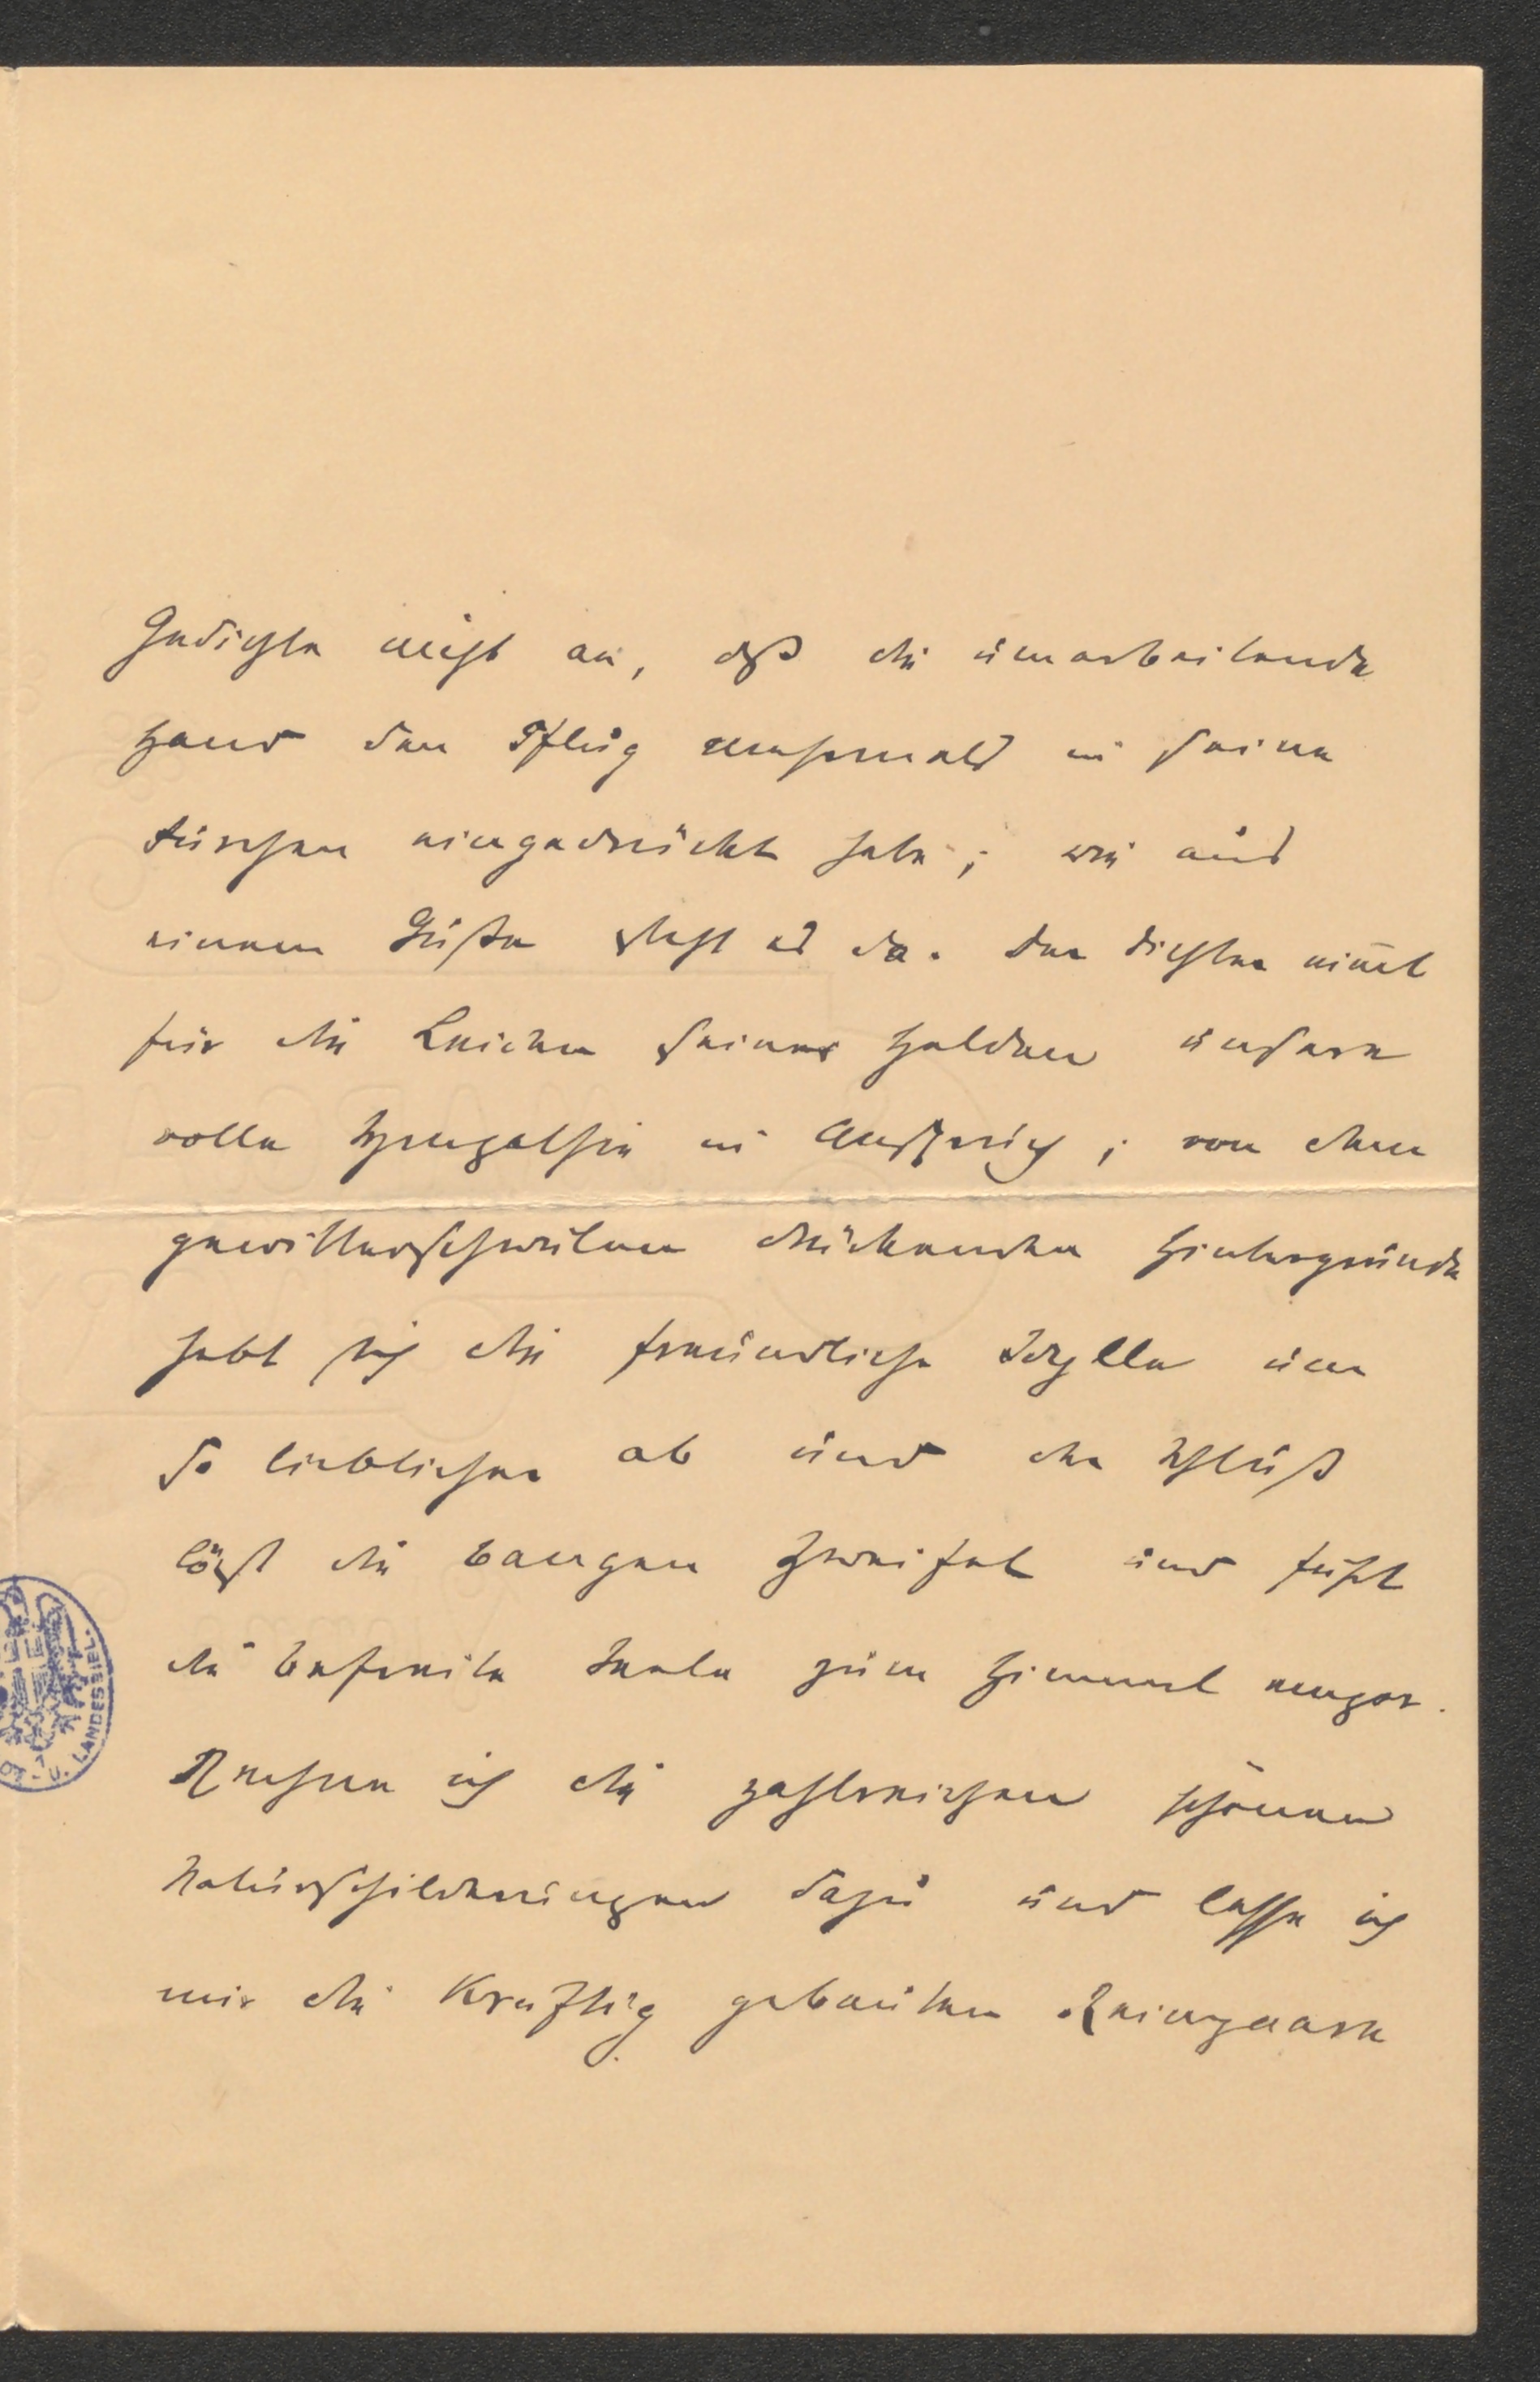 Gedichte nicht an, daß die umarbeitende
Hand den Pflug mehrmals in seine
Furchen eingedrückt habe; wie aus
einem Guße steht es da. Der Dichter nimt
für die Leiden seines Helden unsere
volle Sympathie in Anspruch; von dem
gewitterschwülen drückenden Hintergrunde
hebt sich die freundliche Idylle um
so lieblicher ab und der Schluß
löst die bangen Zweifel und führt
die befreite Seele zum Himmel empor.
Rechne ich die zahlreichen schönen
Naturschilderungen dazu und lasse ich
mir die kräftig gebauten
LANDESBIBL.